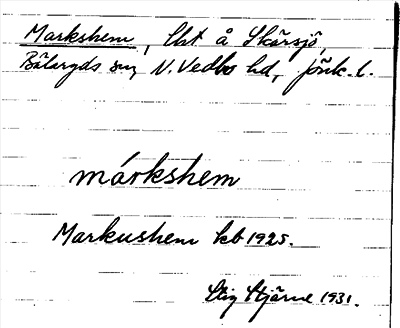 Markshem, lht å Skärsjö,
Bälaryds sn, N. Vedbo hd, Jönk. l.
márkshem
Markushem kb 1925.
Stig Stjärne 1931.